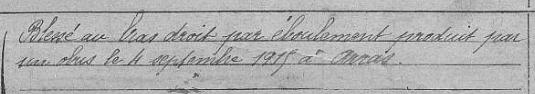 Blessé au bras droit par éboulement produit par
un obus le 4 septembre 1915 à Arras.